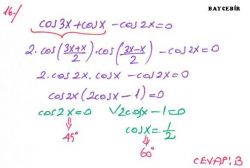 BAYCEBİR
16-/ cos3x+cosx - cos2x=0
2.cos(3x+x/2).cos(3x-x/2) - cos2x=0
2.cos2x.cosx - cos2x=0
cos2x(2cosx-1)=0
cos2x=0 √2cosx-1=0
45° cosx=1/2
60°
CEVAP:B